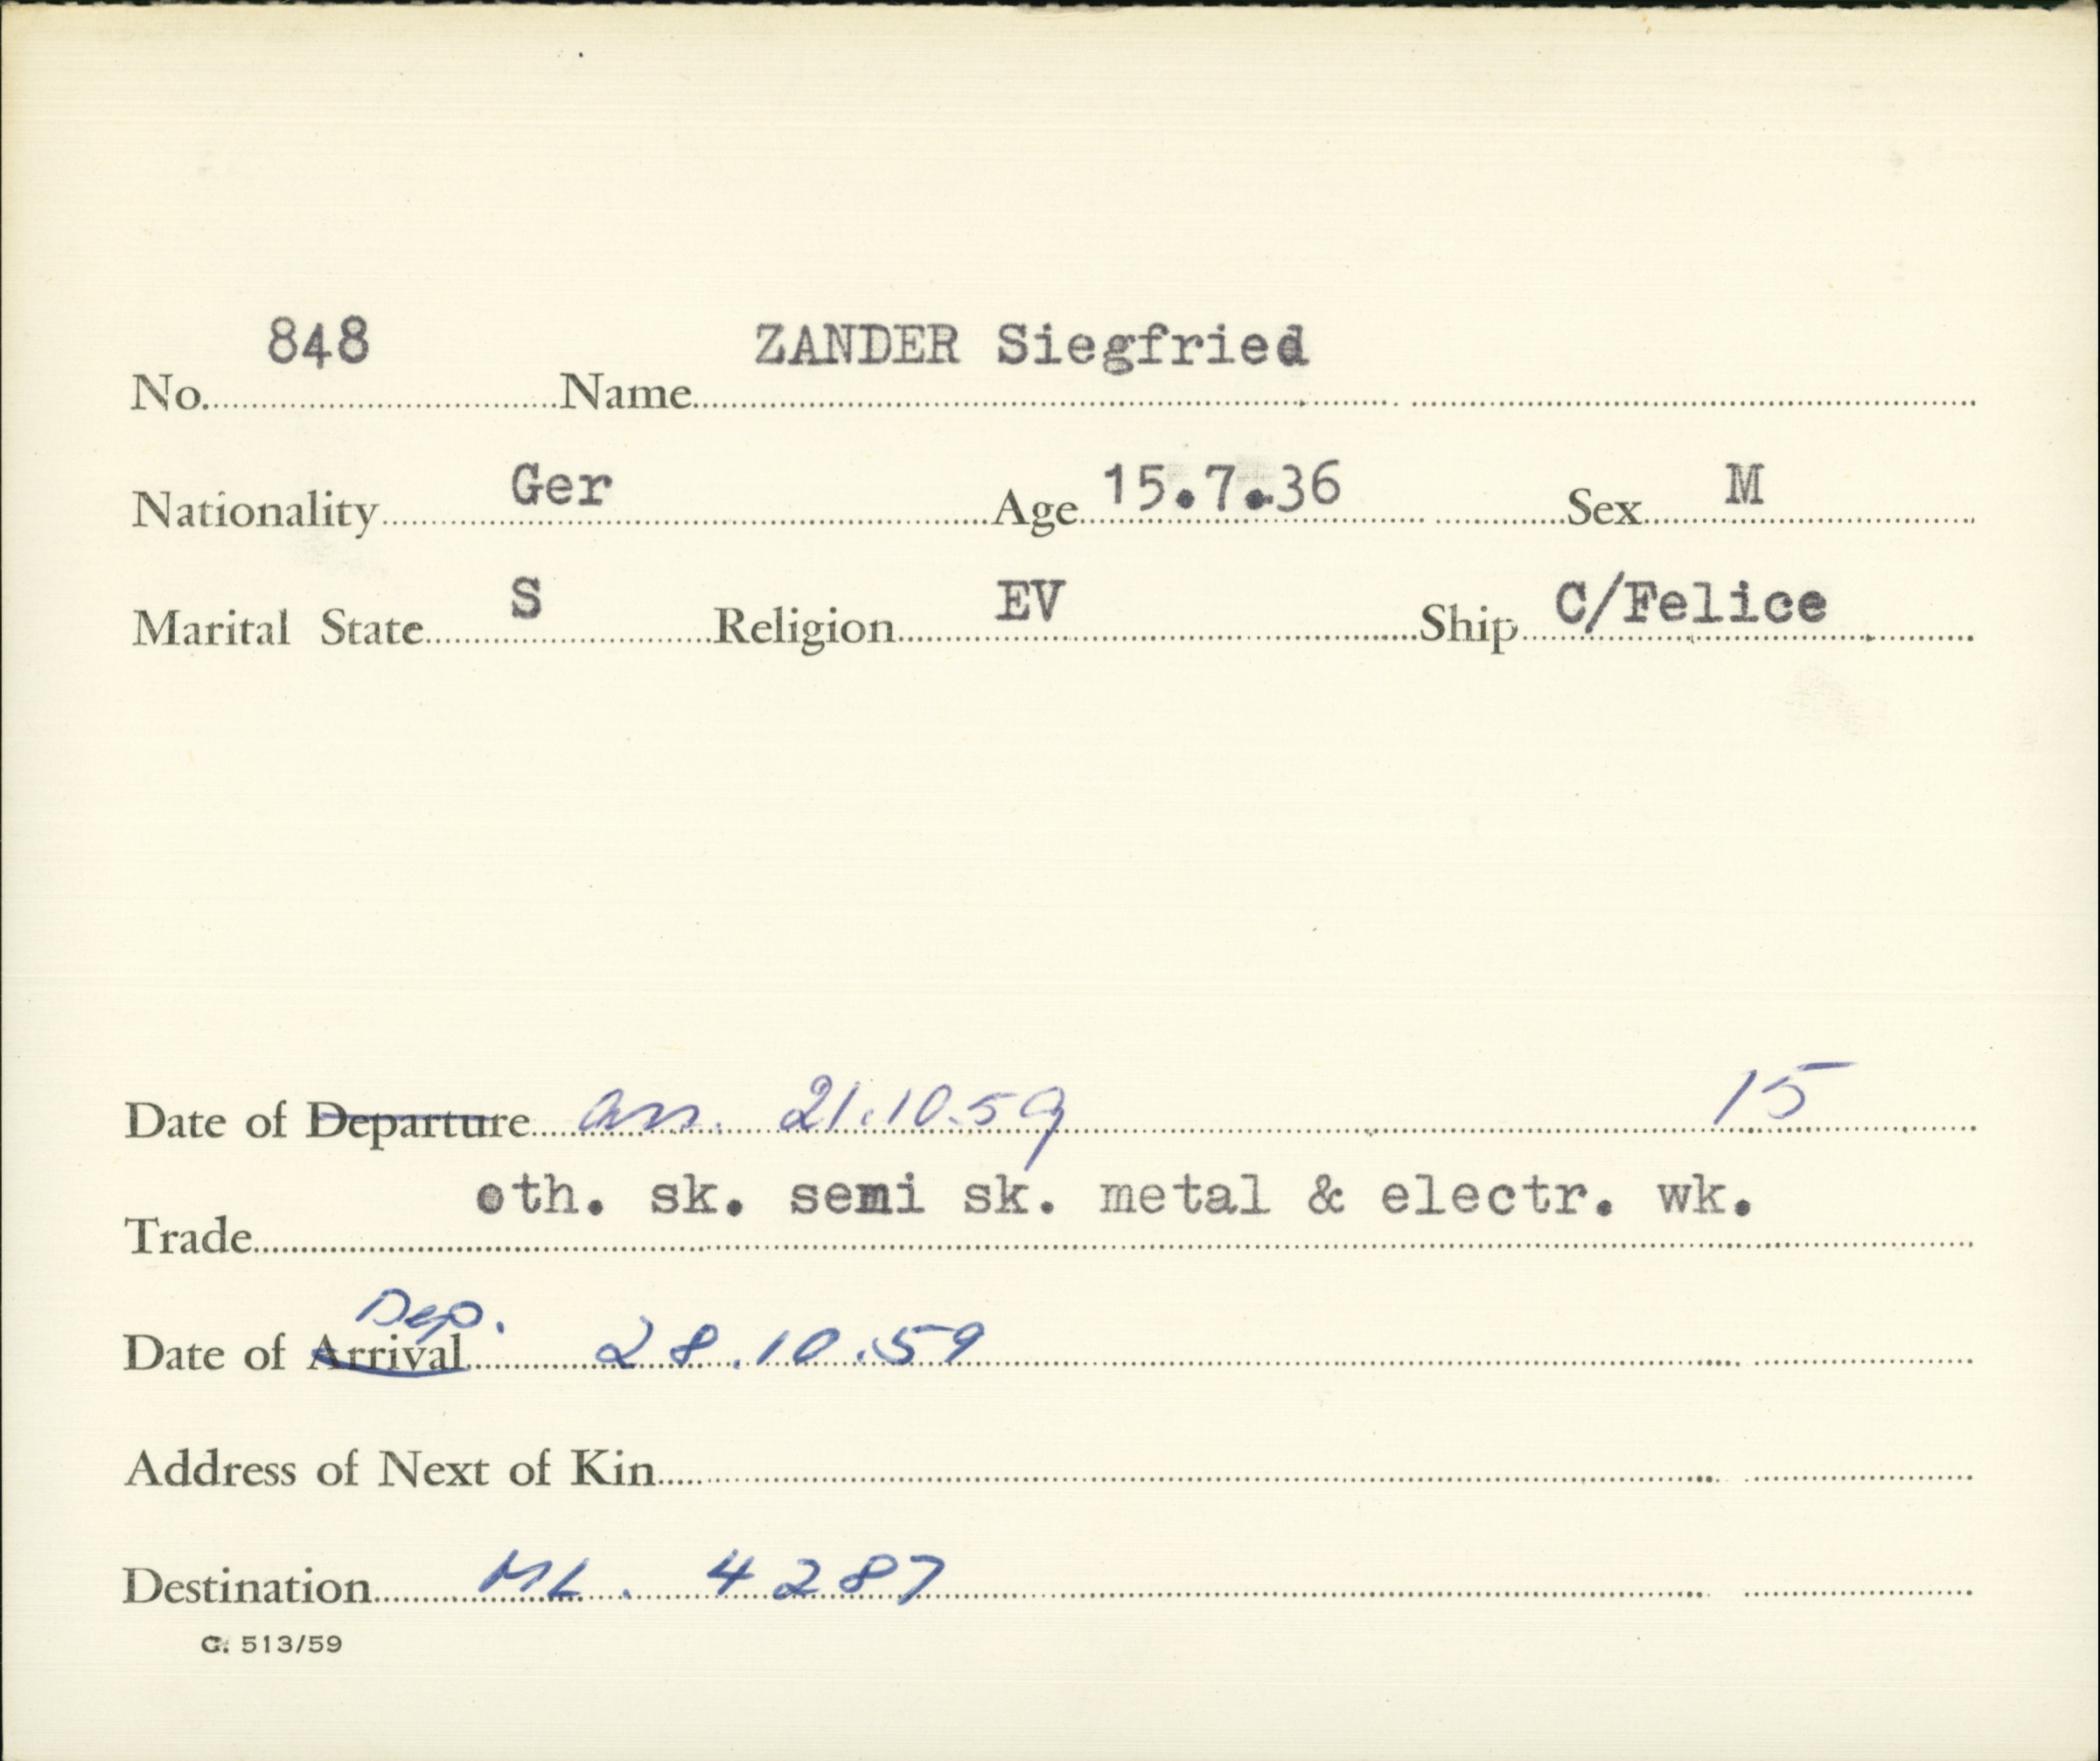 No. 848 Name ZANDER Siegfried
Nationality Ger Age 15.7.36 Sex M
Marital State S Religion EV Ship C/Felice
Date of Departure arr. 21.10.59 15
Trade oth. sk. semi sk. metal & electr. wk.
Dep.
Date of Arrival 28.10.59
Address of Next of Kin
Destination ML. 4287
G. 513/59